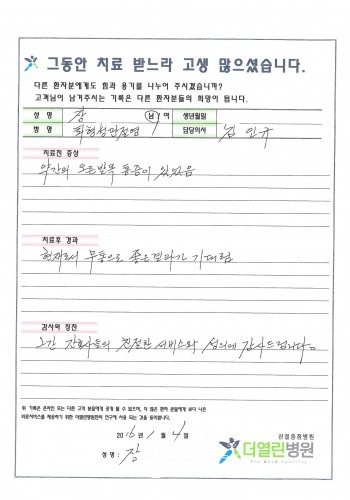 그동안 치료 받느라 고생 많으셨습니다.
다른 환자분에게도 힘과 용기를 나누어 주시겠습니까?
고객님이 남겨주시는 기록은 다른 환자분들의 희망이 됩니다.
성 명 장 남/여 생년월일
병 명 퇴행성관절염 담당의사 김 인규
치료전 증상
약간의 오른발목 통증이 있었음
치료후 경과
현재로서 무통으로 좋은결과가 기대됨
감사와 칭찬
그간 간호사들의 친절한 서비스와 성의에 감사드립니다.
위 기록은 온라인 또는 다른 고객 분들에게 공개 될 수 있으며, 더 많은 환자 분들에게 보다 나은
의료서비스를 제공하기 위한 더열린병원만의 연구에 사용 되는 것을 동의합니다.
2016년 1 월 4 일
성 명 : 장
관절중점병원
더열린병원